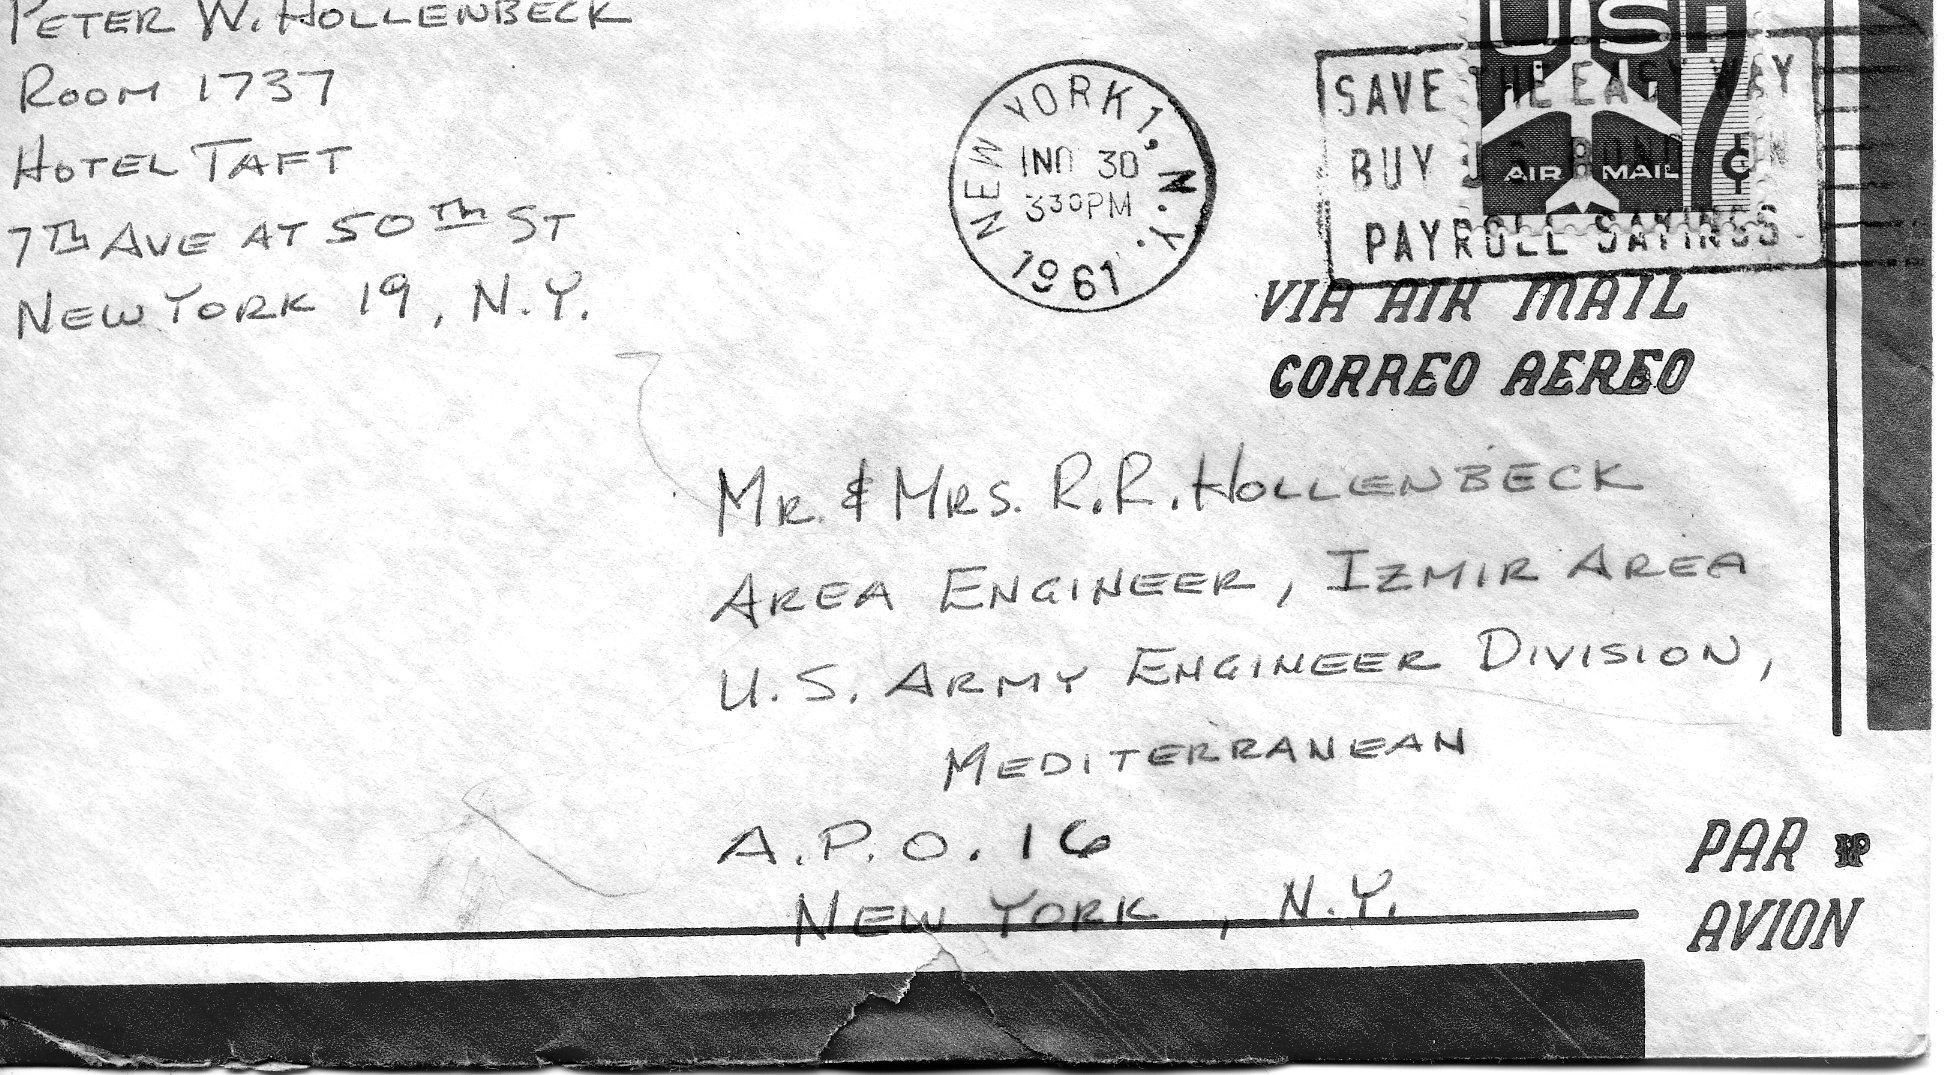 PETER W. HOLLENBECK
ROOM 1737
HOTEL TAFT
7TH AVE AT 50TH ST
NEW YORK 19, N.Y.
NEW YORK 1, N.Y.
30
330PM
1961
US
AIR MAIL
7¢
SAVE THE EASY WAY
BUY U.S. BONDS ON
PAYROLL SAVINGS
VIA AIR MAIL
CORREO AEREO
MR. & MRS. R.R. HOLLENBECK
AREA ENGINEER, IZMIR AREA
U.S. ARMY ENGINEER DIVISION,
MEDITERRANEAN
A.P.O. 16
NEW YORK, N.Y.
PAR
AVION